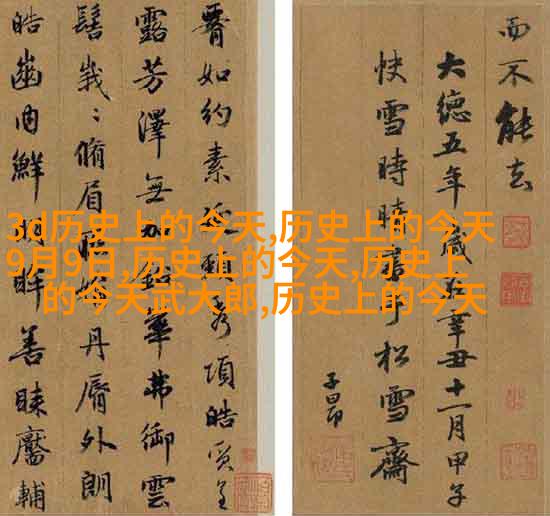 3d历史上的今天,历史上的今天
9月9日,历史上的今天,历史上
的今天武大郎,历史上的今天
如約素延頸秀項皓質呈
露芳澤無加鉛華弗御雲
髻峩〻脩眉丹脣外朗
皓齒內鮮明眸善睞靨輔
而不能去
大德五年歲在辛丑十一月甲子
快雪時晴書于松雪齋
子昂